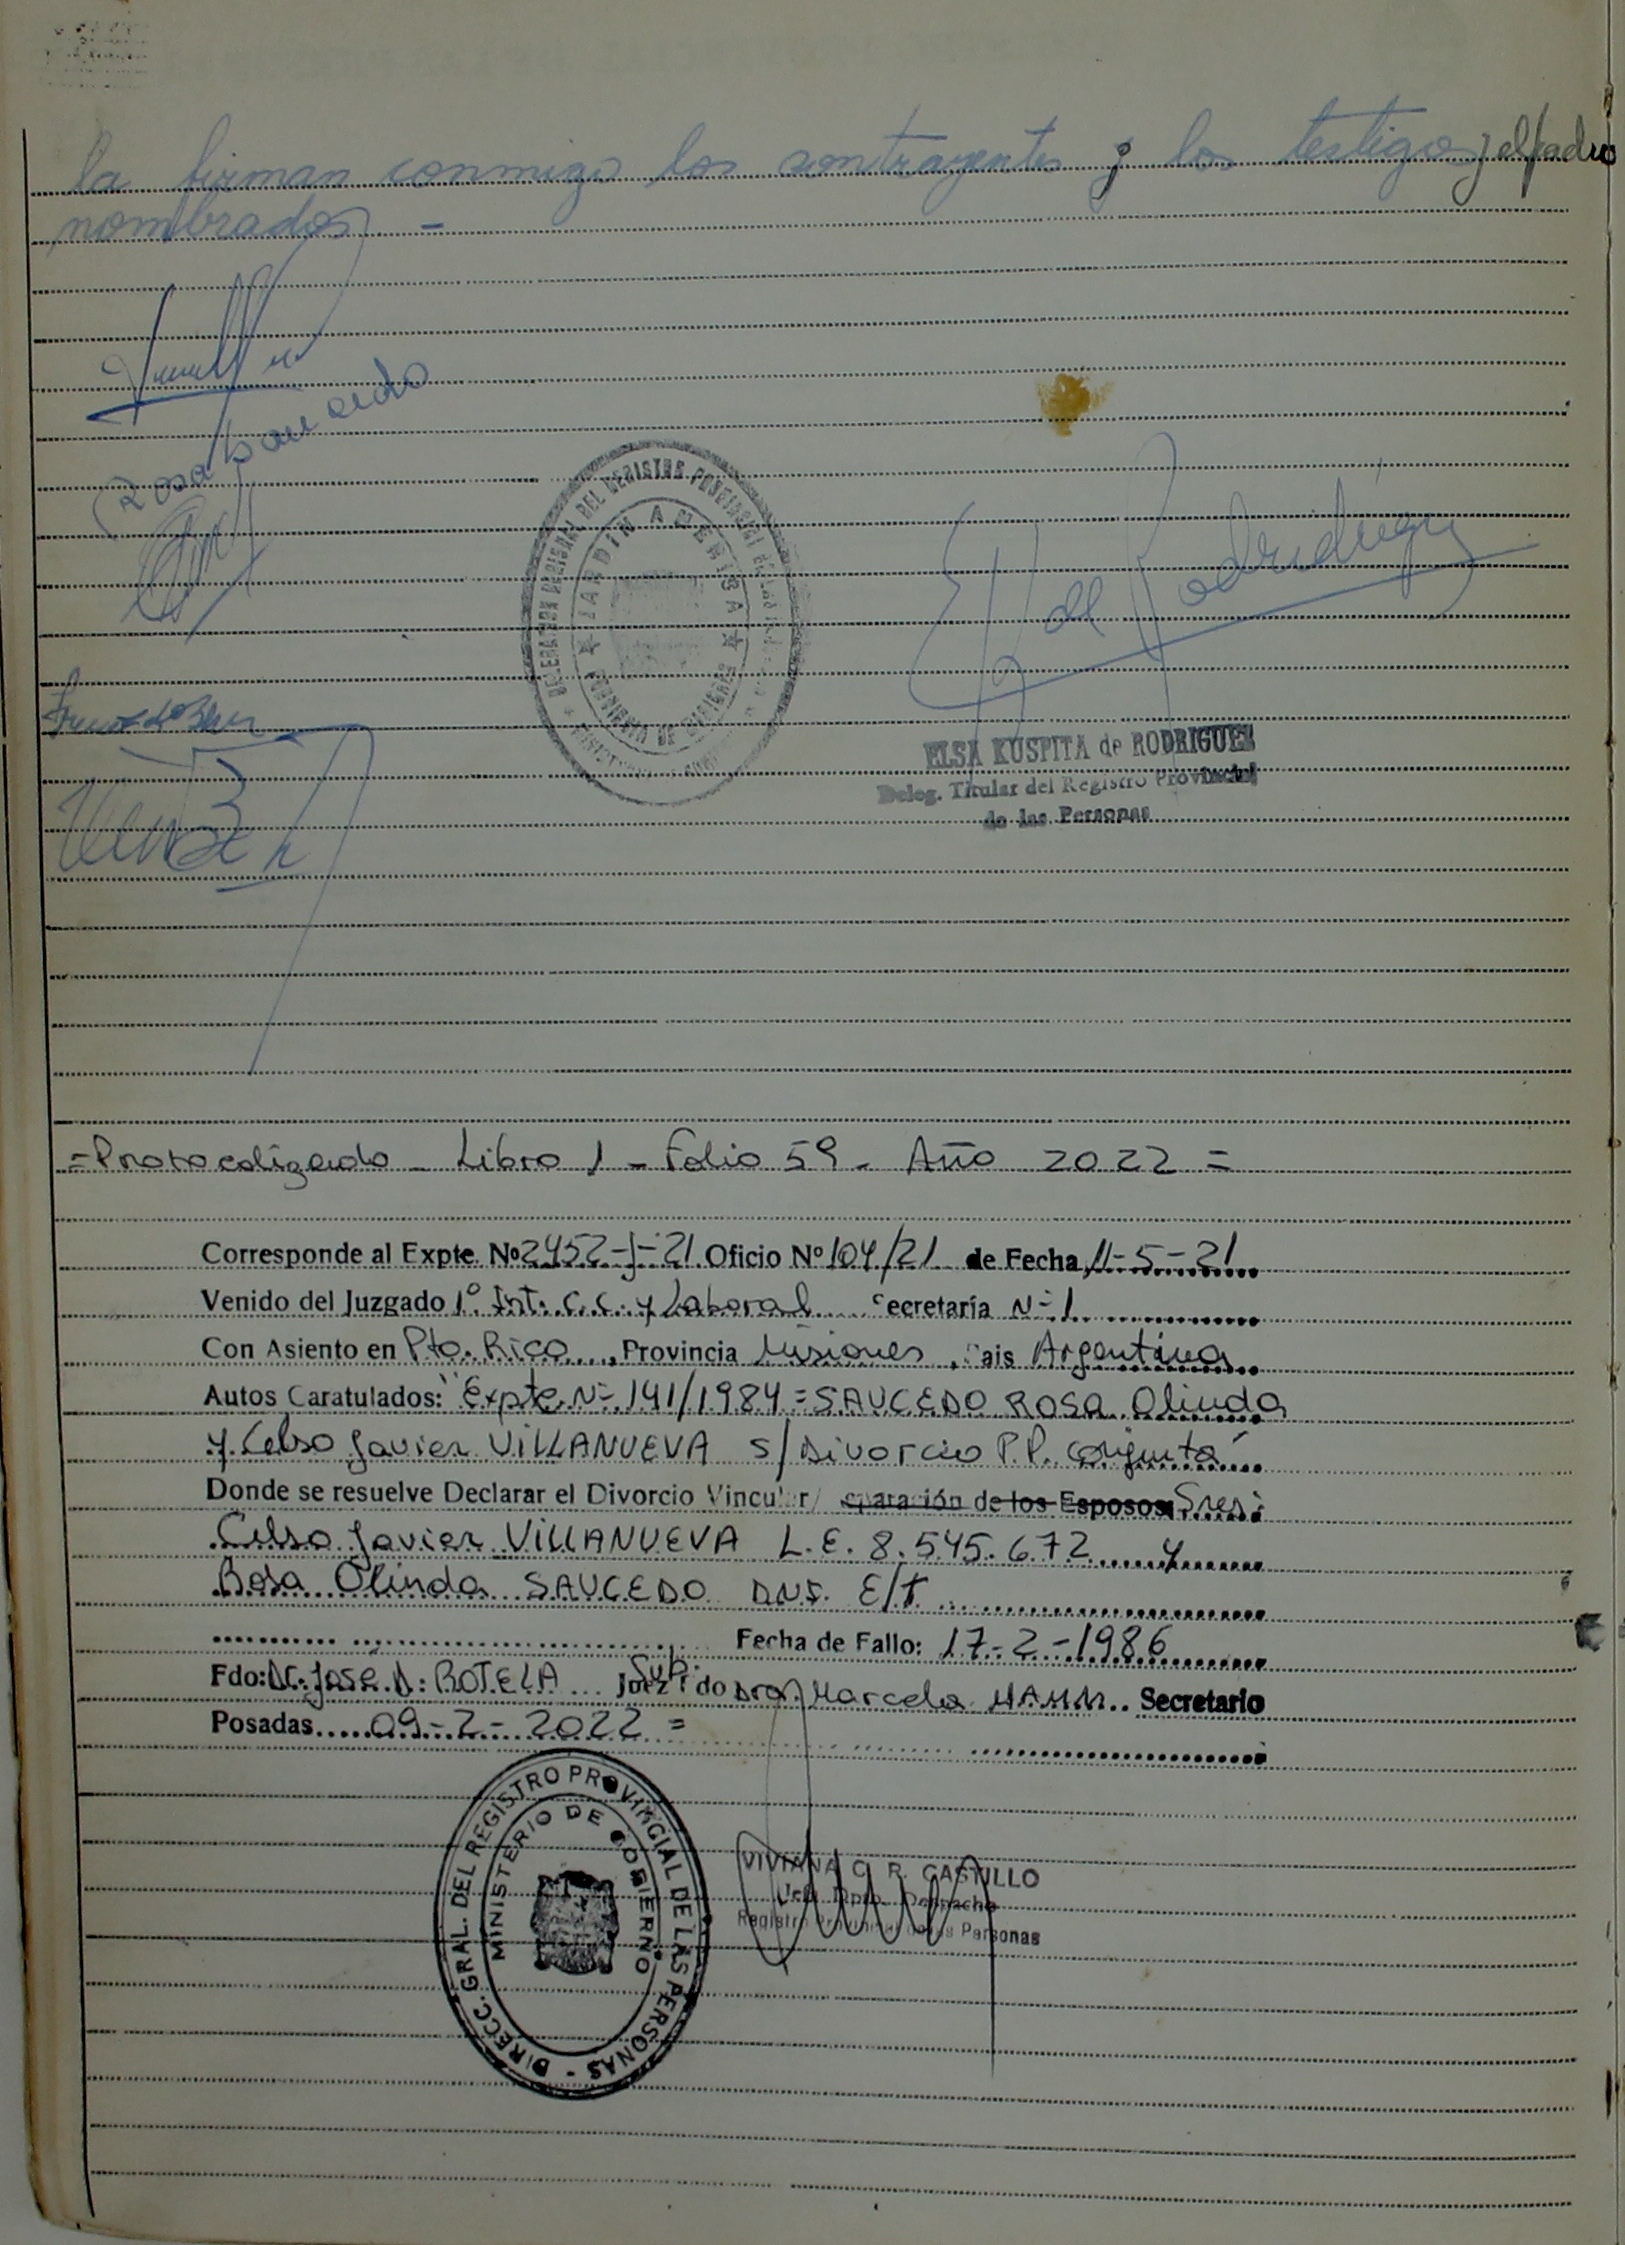 la firman conmigo los contrayentes y los testigos y el padre
nombrados. -
Rosa Saucedo
DELEGACION REGIONAL DEL REGISTRO PROVINCIAL
JARDIN AMERICA
PROVINCIA DE MISIONES
E de Rodriguez
ELSA KUSPITA de RODRIGUEZ
Deleg. Titular del Registro Provincial
de las Personas
=Protocolizado - Libro 1 - Folio 59 - Año 2022 =
Corresponde al Expte. Nº 2452-J-21 Oficio Nº 104/21 de Fecha 11-5-21
Venido del Juzgado 1º Int. C.C. y Laboral Secretaría Nº 1
Con Asiento en Pto. Rico, Provincia Misiones, Pais Argentina
Autos Caratulados: "Expte Nº 141/1984 = SAUCEDO ROSA Olinda
y Celso Javier VILLANUEVA s/ Divorcio P.P. conjunta"
Donde se resuelve Declarar el Divorcio Vincular/ separación de los Esposos Sres:
Celso Javier VILLANUEVA L.E. 8.545.672 y
Rosa Olinda SAUCEDO D.N.I. E/T
Fecha de Fallo: 17-2-1986
Fdo: Dr. José D. ROTELA Juez Fdo Dra. Marcela HAHN Sub. Secretario
Posadas 09-2-2022 =
DIRECC. GRAL. DEL REGISTRO PROVINCIAL DE LAS PERSONAS -
MINISTERIO DE GOBIERNO
VIVIANA C. R. CASTILLO
Jefa Dpto. Despacho
Registro Provincial de las Personas